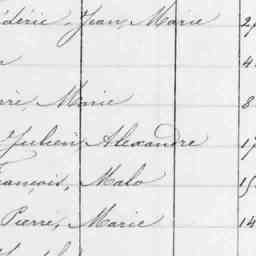 édéric, Jean, Marie 2
4
erre, Marie 8
Julien, Alexandre 17
François, Malo 15
Pierre, Marie 14